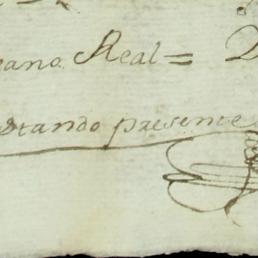 ano Real =
stando presente